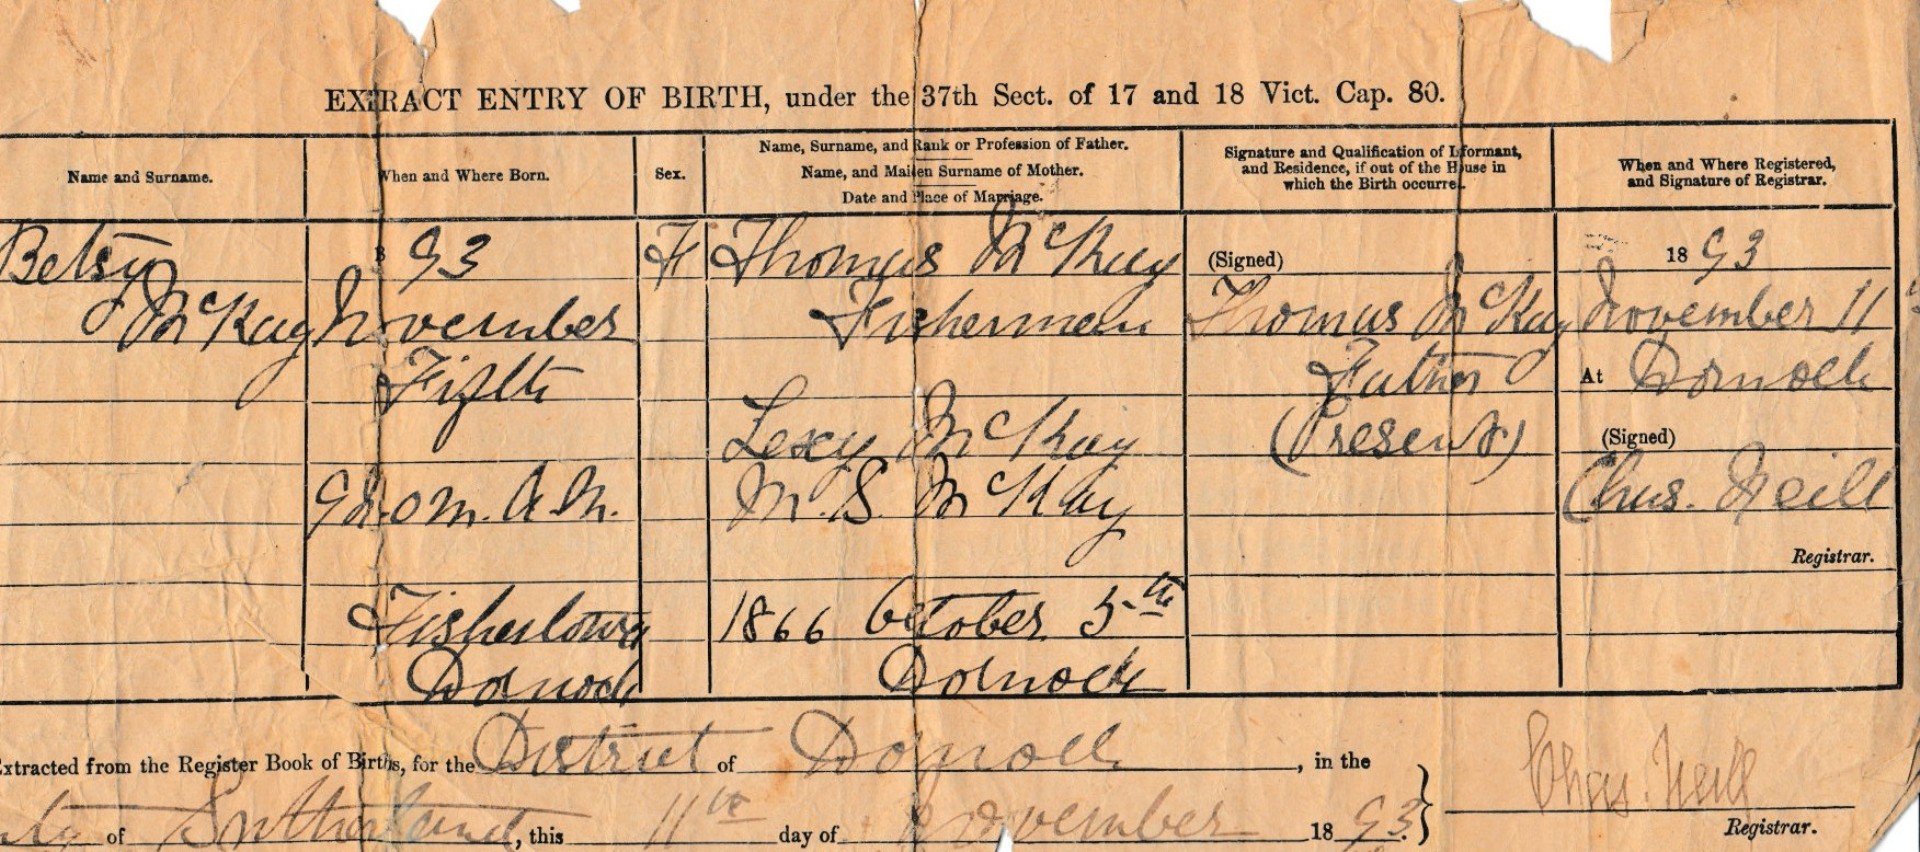 EXTRACT ENTRY OF BIRTH, under the 37th Sect. of 17 and 18 Vict. Cap. 80.
Name and Surname.
When and Where Born.
Sex.
Name, Surname, and Rank or Profession of Father.
Name, and Maiden Surname of Mother.
Date and Place of Marriage.
Signature and Qualification of Informant,
and Residence, if out of the House in
which the Birth occurred.
When and Where Registered,
and Signature of Registrar.
Betsy
McKay
93
November
Fifth
9h. 0m. A.M.
Fishertown
Dornoch
F
Thomas McKay
Fisherman
Lexy McKay
M.S. McKay
1866 October 5th
Dornoch
(Signed)
Thomas McKay
Father
(Present)
1893
November 11
At Dornoch
(Signed)
Chas. Neill
Registrar.
Extracted from the Register Book of Births, for the District of Dornoch, in the
of Sutherland, this 11th day of November 1893.
Chas. Neill
Registrar.